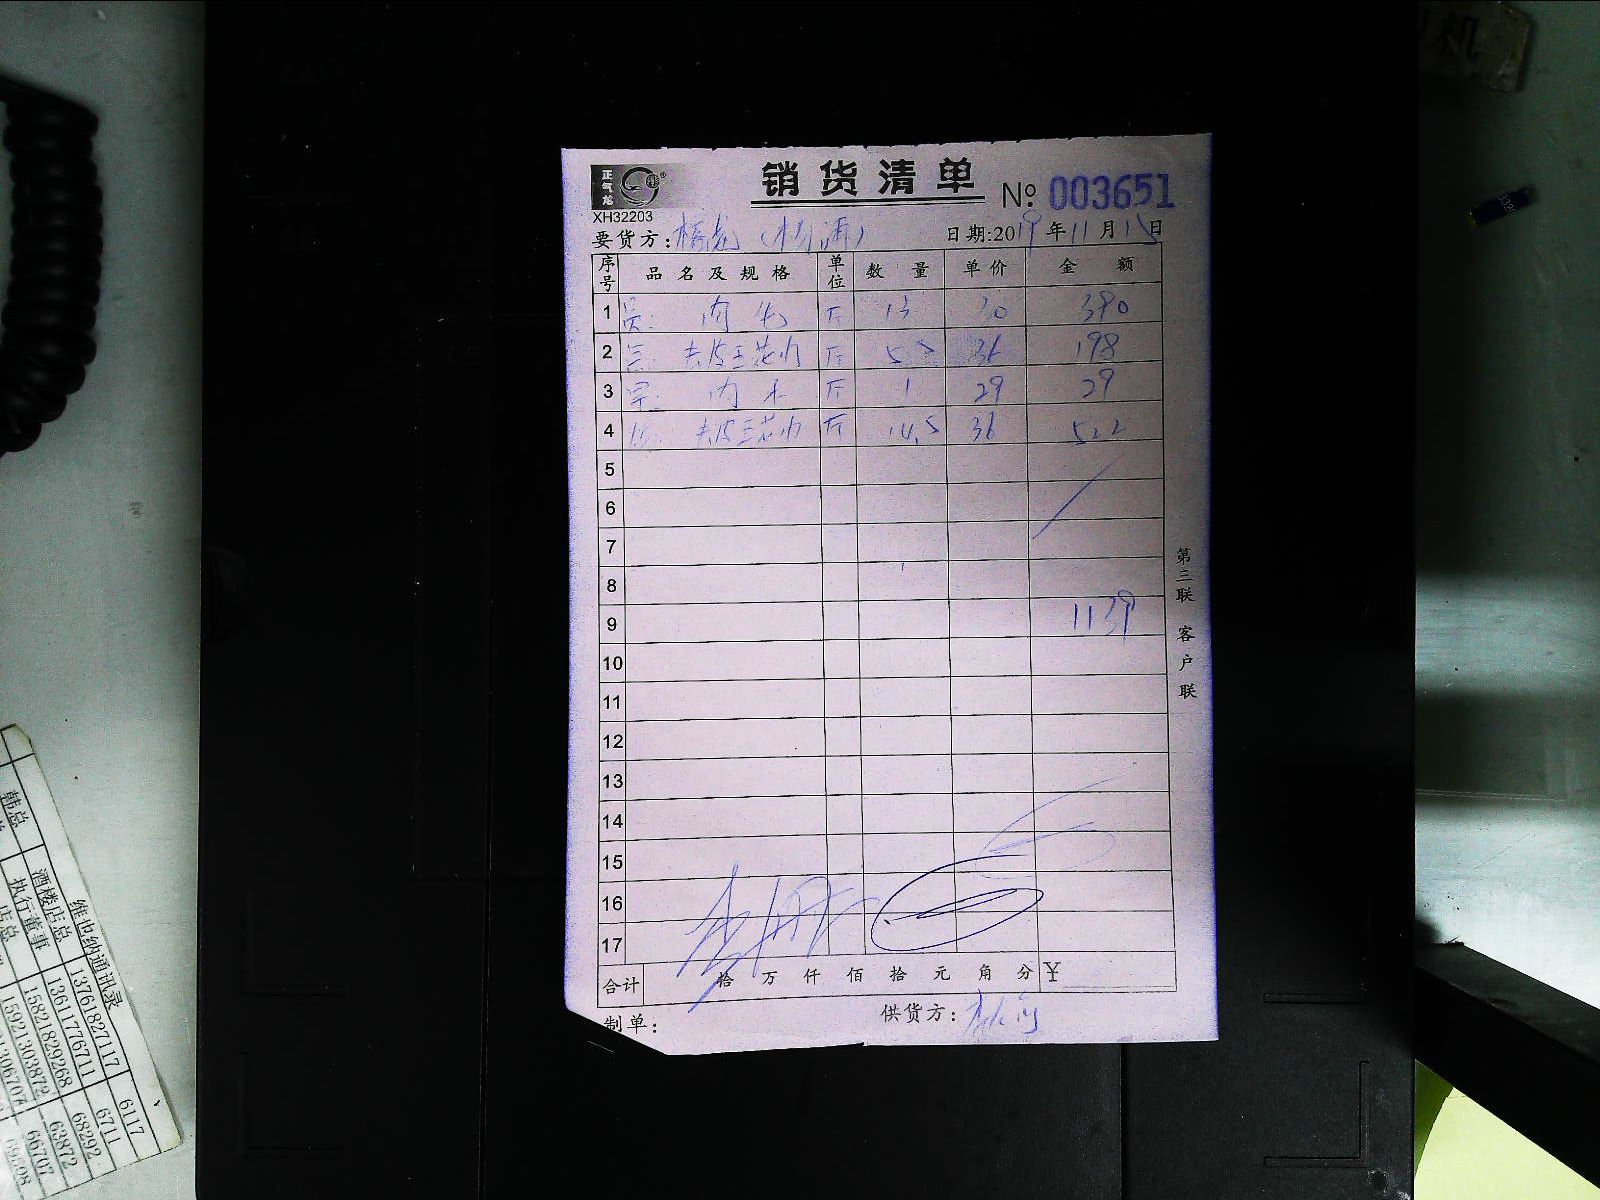 正气龙
销货清单
XH32203
№ 003651
要货方: 桥龙(杨浦) 日期:2019年11月15日
序号 品名及规格 单位 数量 单价 金额
1 肉 斤 13 30 390
2 去皮五花肉 斤 5.5 36 198
3 肉 斤 1 29 29
4 去皮五花肉 斤 14.5 36 522
5
6
7
8
9 1139
10
11
12
13
14
15
16
17
合计 拾 万 仟 佰 拾 元 角 分 ¥
制单: 供货方:
第三联 客户联
机
维也纳通讯录
韩总 酒楼店总 13761827117 6117
执行董事 13611776711 6711
店总 15821829268 68292
15921303872 63872
66707